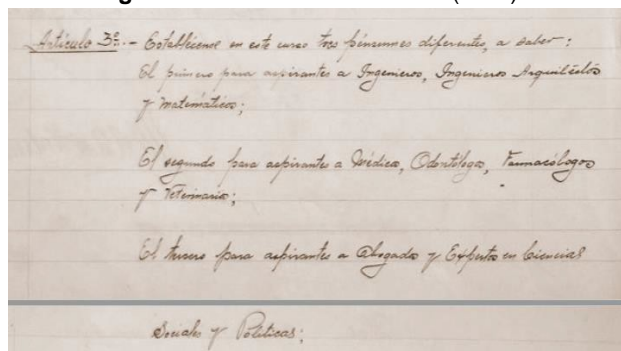 Artículo 3º.- Establécense en este curso tres pénsumes diferentes, a saber:
El primero para aspirantes a Ingenieros, Ingenieros Arquitéctos
y matemáticos;
El segundo para aspirantes a Médicos, Odontólogos, Farmacólogos
y Veterinarios;
El tercero para aspirantes a Abogados y Expertos en Ciencias
Sociales y Políticas;